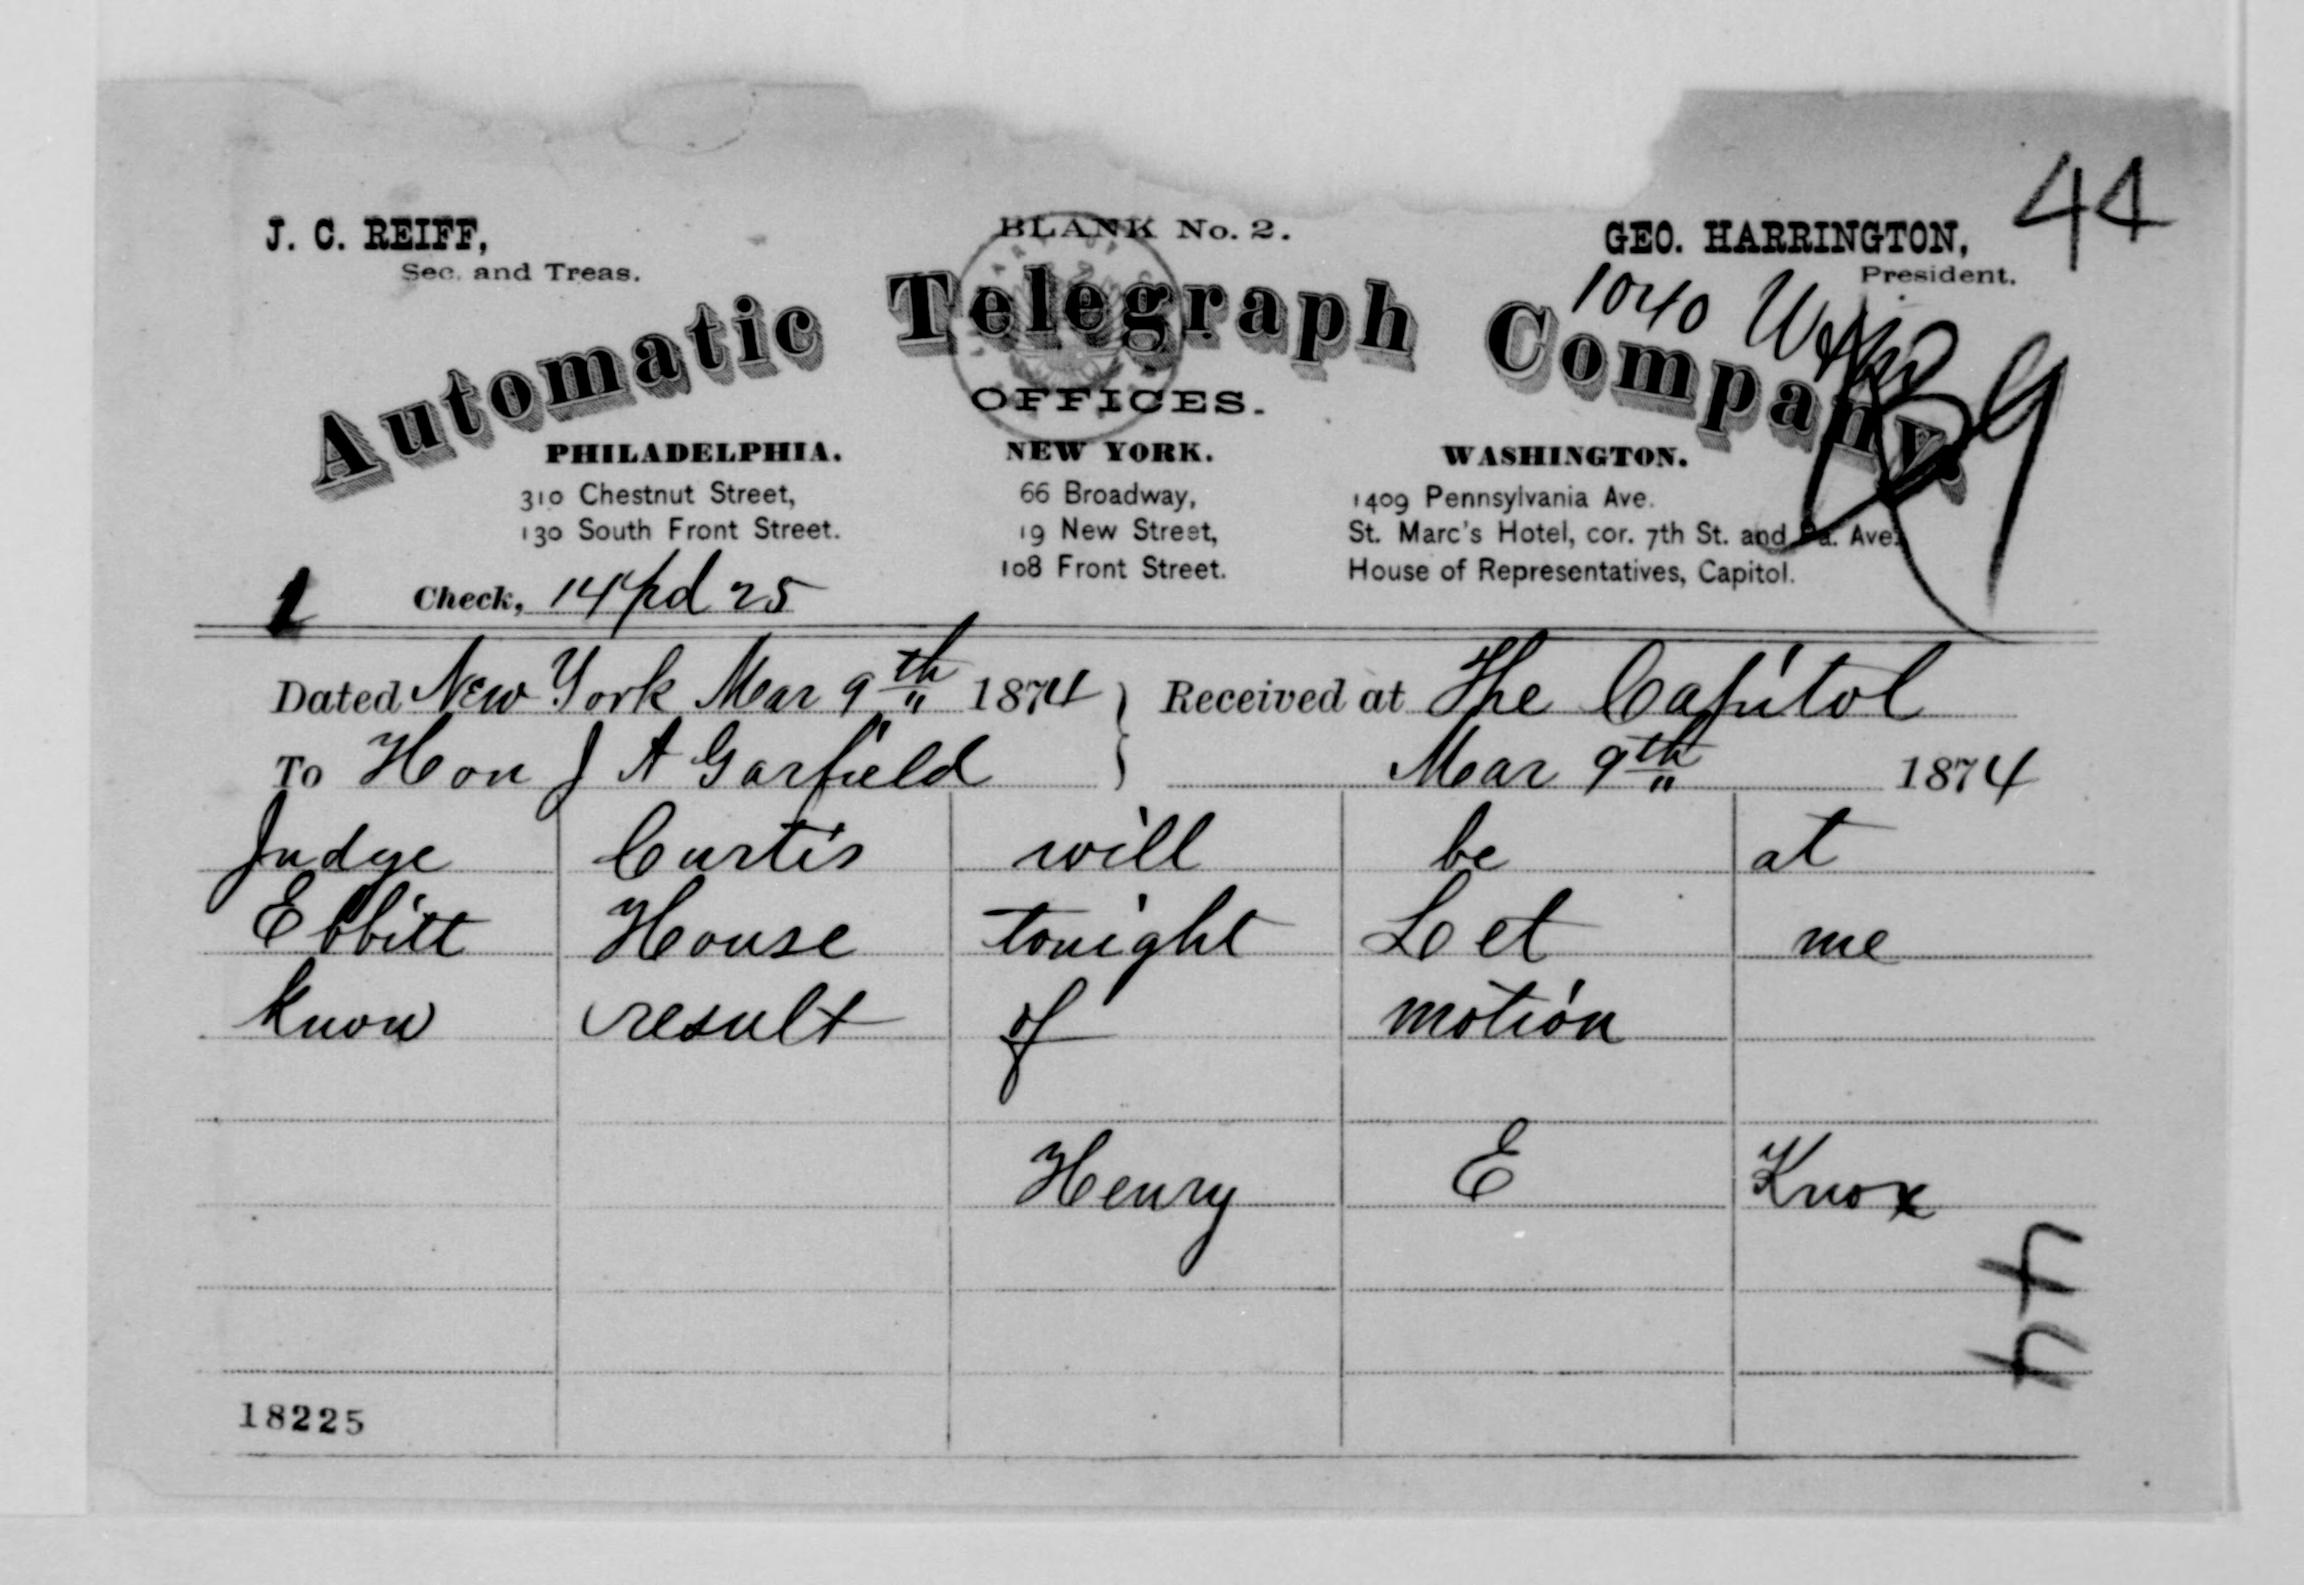 44
J. C. REIFF,
Sec. and Treas.
BLANK No. 2.
GEO. HARRINGTON,
President.
1040
Automatic Telegraph Company.
OFFICES.
PHILADELPHIA.
310 Chestnut Street,
130 South Front Street.
NEW YORK.
66 Broadway,
19 New Street,
108 Front Street.
WASHINGTON.
1409 Pennsylvania Ave.
St. Marc's Hotel, cor. 7th St. and Pa. Ave.
House of Representatives, Capitol.
1 Check, 14 pd 25
Dated New York Mar 9th 1874 } Received at The Capitol
To Hon J A Garfield Mar 9th 1874
Judge Curtis will be at
Ebbitt House tonight Let me
know result of motion
Henry E Knox
44
18225